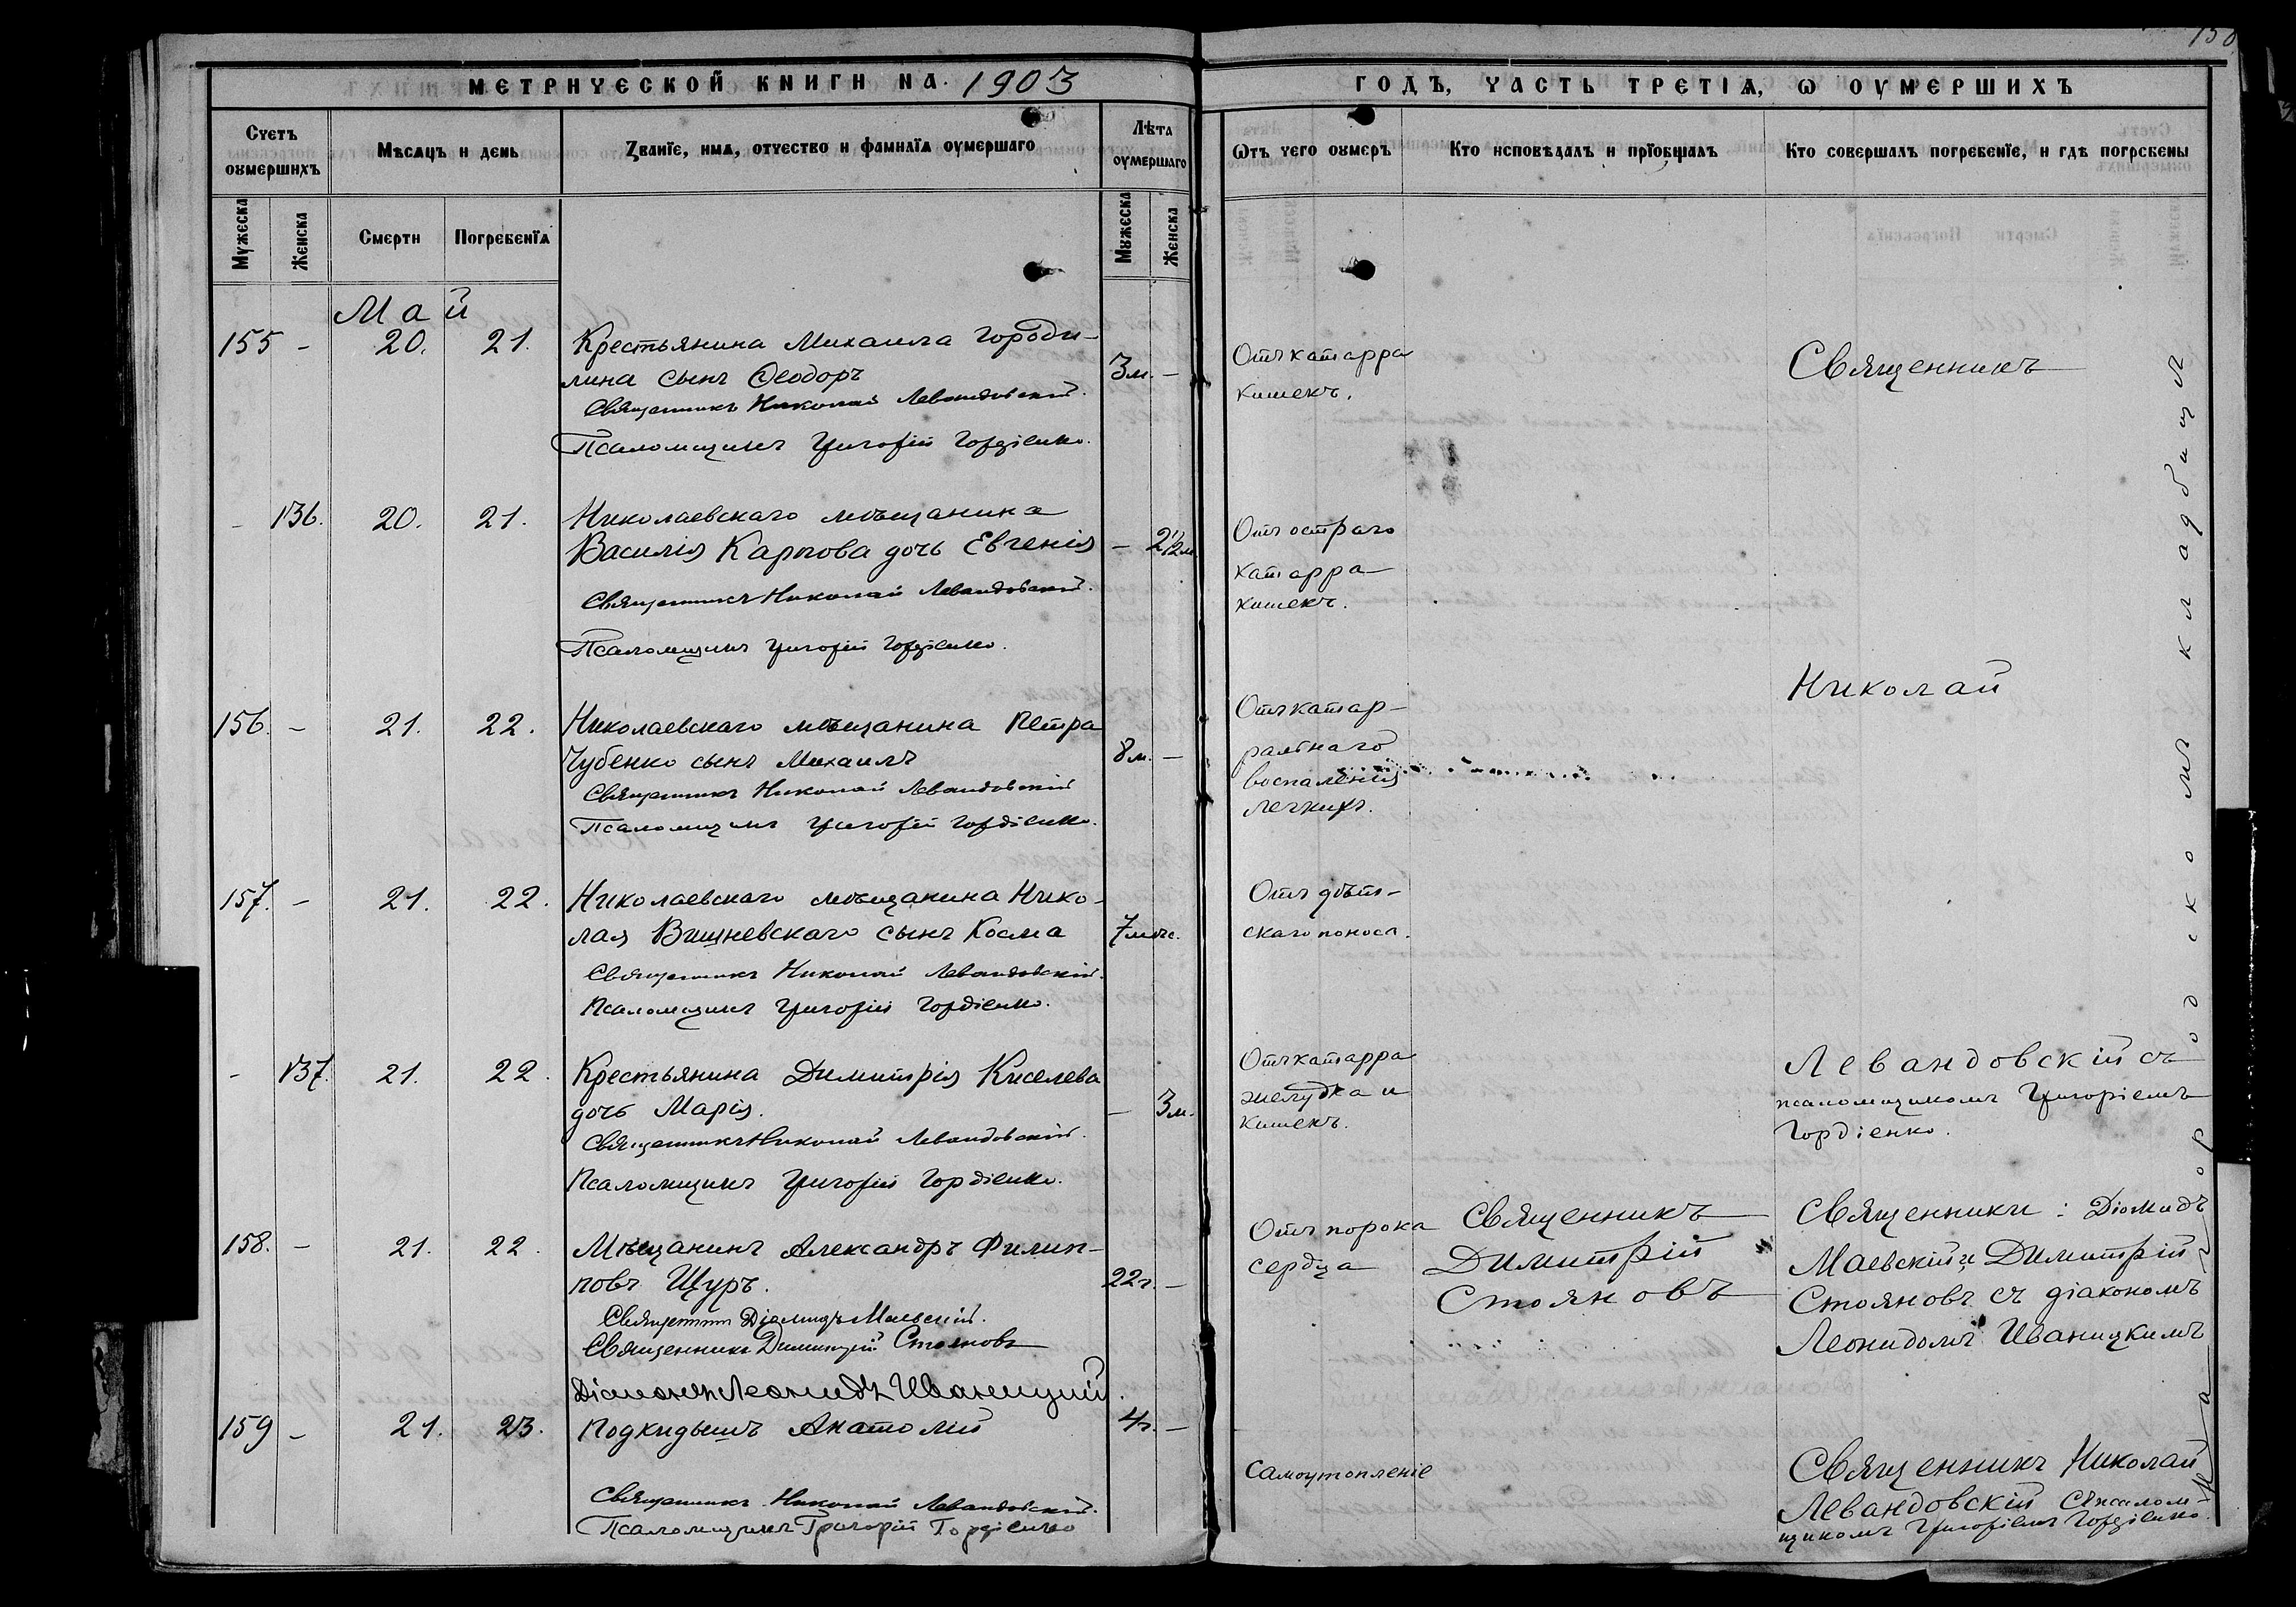 150
МЕТРИЧЕСКОЙ КНИГИ НА 1903
ГОДЪ, ЧАСТЬ ТРЕТІѦ, Ѡ ОУМЕРШИХЪ
Счетъ оумершихъ
Мѣсѧцъ и день
Званїе, имѧ, отчество и фамилїѧ оумершаго
Лѣта оумершаго
Ѿтъ чего оумеръ
Кто исповѣдалъ и прїобщалъ
Кто совершалъ погребенїе, и гдѣ погребены
Мужеска
Женска
Смерти
Погребенїѧ
Мужеска
Женска
Май
155 - 20. 21. Крестьянина Михаила Городи-
лина сынъ Ѳеодоръ
3 м. -
Священникъ Николай Левандовскій.
Псаломщикъ Григорій Гордіенко.
Отъ катарра
кишекъ.
Священникъ
- 136. 20. 21. Николаевскаго мѣщанина
Василія Карпова дочь Евгенія
- 2½ м.
Священникъ Николай Левандовскій.
Псаломщикъ Григорій Гордіенко.
Отъ остраго
катарра
кишекъ.
Николай
156. - 21. 22. Николаевскаго мѣщанина Петра
Чубенко сынъ Михаилъ
8 м. -
Священникъ Николай Левандовскій
Псаломщикъ Григорій Гордіенко.
Отъ катар-
ральнаго
воспаленія
легкихъ.
157. - 21. 22. Николаевскаго мѣщанина Нико-
лая Вишневскаго сынъ Косма
7 мѣс.
Священникъ Николай Левандовскій.
Псаломщикъ Григорій Гордіенко.
Отъ дѣт-
скаго поноса.
- 137. 21. 22. Крестьянина Димитрія Киселева
дочь Марія.
- 3 м.
Священникъ Николай Левандовскій.
Псаломщикъ Григорій Гордіенко.
Отъ катарра
желудка и
кишекъ.
Левандовскій съ
псаломщикомъ Григоріемъ
Гордіенко.
158. - 21. 22. Мѣщанинъ Александръ Филип-
повъ Щуръ.
22 г. -
Священникъ Діомидъ Маевскій.
Священникъ Димитрій Стояновъ
Діаконъ Леонидъ Иваницкій.
Отъ порока
сердца
Священникъ
Димитрій
Стояновъ
Священники: Діомидъ
Маевскій и Димитрій
Стояновъ съ діакономъ
Леонидомъ Иваницкимъ
159 - 21. 23. Подкидышъ Анатолій
4 г. -
Священникъ Николай Левандовскій.
Псаломщикъ Григорій Гордіенко
Самоутопленіе
Священникъ Николай
Левандовскій съ псалом-
щикомъ Григоріемъ Гордіенко.
На городскомъ кладбищѣ